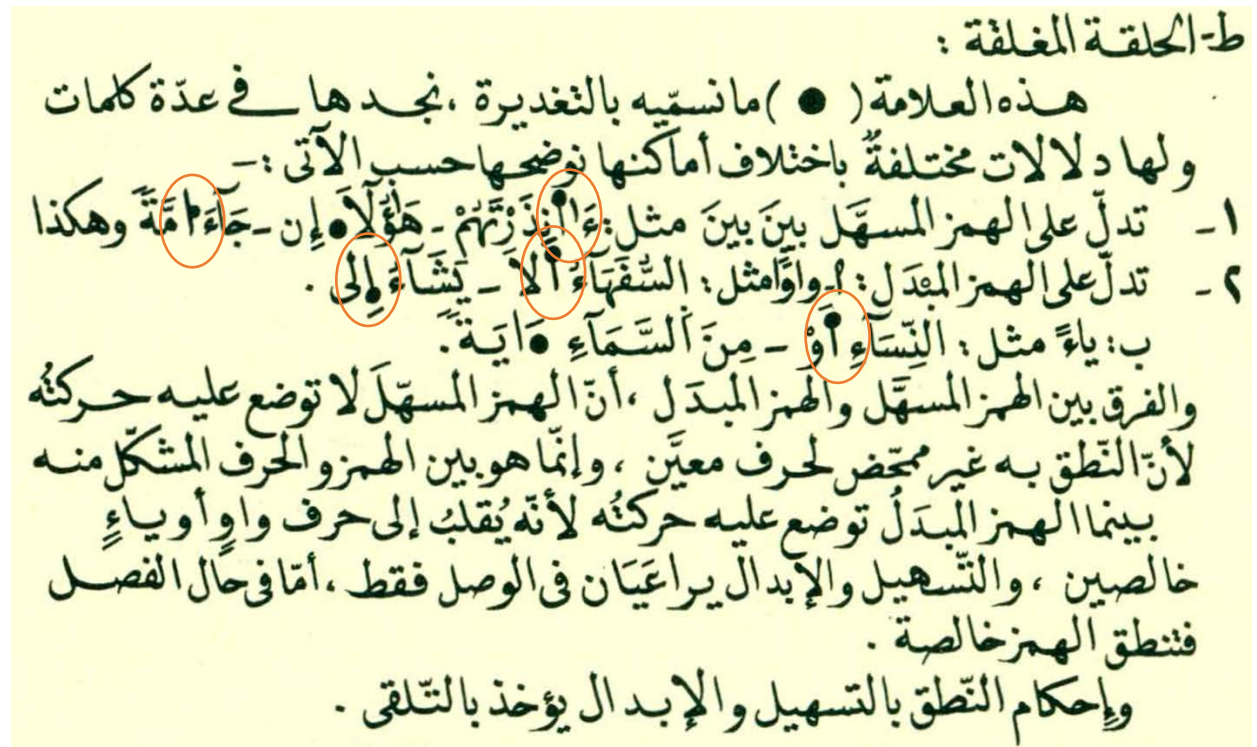 ط-الحلقة المغلقة :
هذه العلامة ( ● ) مانسمّيه بالتغديرة ، نجدها في عدّة كلمات
ولها دلالات مختلفةٌ باختلاف أماكنها نوضحها حسب الآتى :-
١- تدلّ على الهمز المسهَّل بينَ بينَ مثل: ءَا●نذَرْتَهُمْ - هَٰؤُلَآ● إِن - جَآءَ ا●مَّةً وهكذا
٢- تدلّ على الهمز المبْدَل : ا- واوًا مثل : السُّفَهَآءُ ا●َلَا - يَشَآءُ ا●ِلى .
ب: ياءً مثل : النِّسَآءِ ا●َوْ - مِنَ السَّمَآءِ ●َايَة .
والفرق بين الهمز المسهَّل والهمز المبدَل ، أنّ الهمز المسهّلَ لا توضع عليه حركتُه
لأنّ النّطق به غير ممحّض لحرف معيَّن ، وإنّما هو بين الهمز والحرف المشكّل منه
بينما الهمز المبدَلُ توضع عليه حركتُه لأنّه يُقلبُ إلى حرف واوٍ أو ياءٍ
خالصين ، والتّسهيل والإبدال يراعَيَان فى الوصل فقط ، أمّا فى حال الفصل
فتنطق الهمز خالصة .
وإحكام النّطق بالتسهيل والإبدال يؤخذ بالتّلقى .